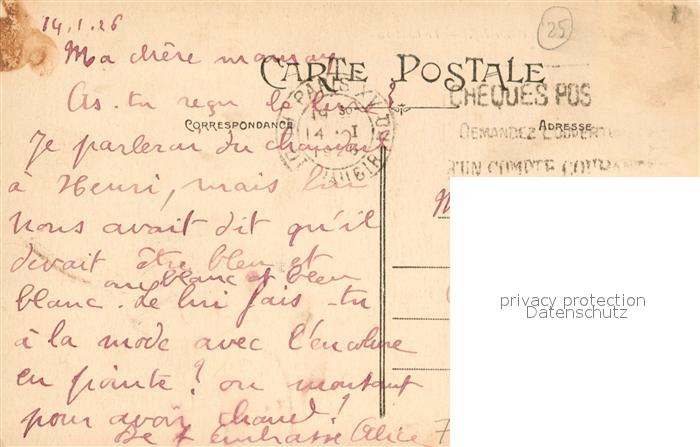 14.1.26
25
Ma chère maman
CARTE POSTALE
As-tu reçu le
CORRESPONDANCE
ADRESSE
PARIS XV
CHEQUES POS
DEMANDEZ L'OUVERTU
D'UN COMPTE COURANT
Je parlerai du
à Henri, mais lui
nous avait dit qu'il
devait être bleu et
ou blanc et bleu
blanc. Le lui fais-tu
à la mode avec l'encolure
en pointe? ou montant
pour avoir chaud!
Je t'embrasse Alice
privacy protection
Datenschutz